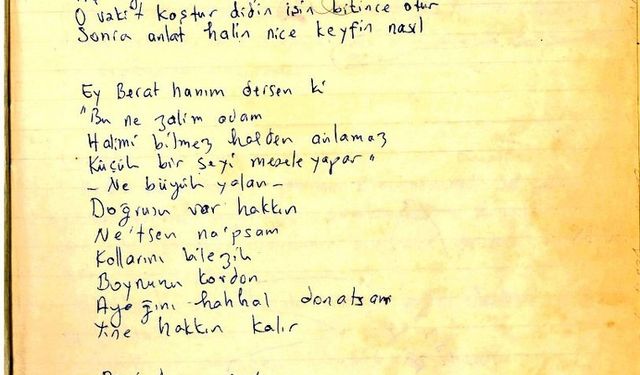 O vakit koştur didin işin bitince otur
Sonra anlat halin nice keyfin nasıl
Ey Berat hanım dersen ki
"Bu ne zalim adam
Halimi bilmez halden anlamaz
Küçük bir şeyi mesele yapar"
- Ne büyük yalan -
Doğrusu var hakkın
Ne'tsen na'psam
Kollarını bilezik
Boynunu kordon
Ayağını halhal donatsam
Yine hakkın kalır